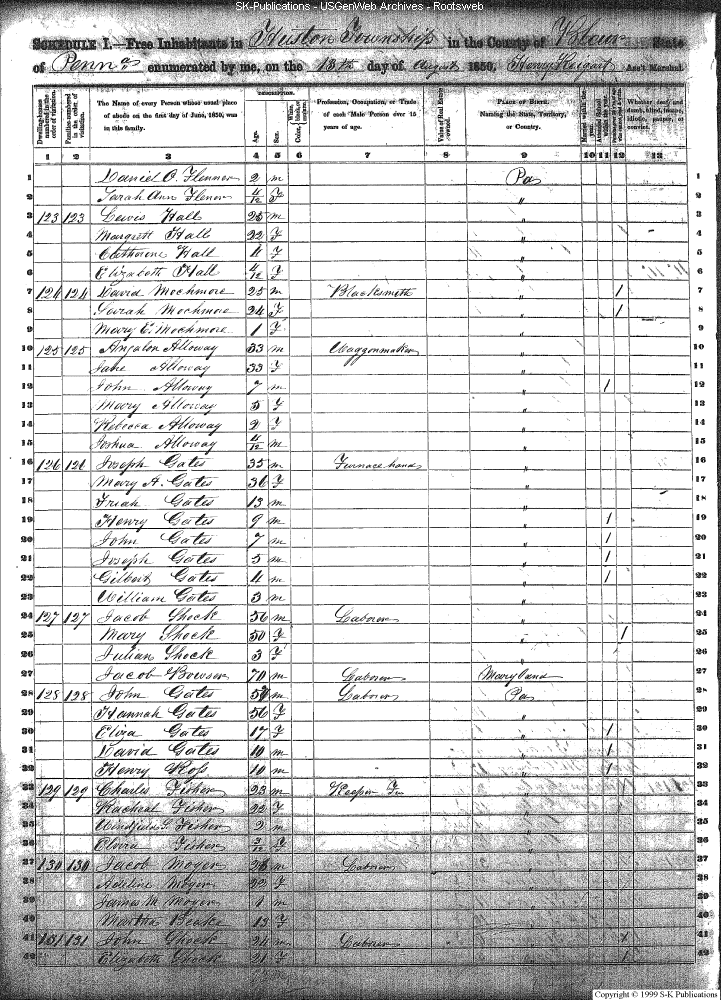 SK-Publications - USGenWeb Archives - Rootsweb
SCHEDULE I.—Free Inhabitants in Huston Township in the County of Blair State
of Penna enumerated by me, on the 13th day of August 1850. Henry Reigart Ass't Marshal.
Dwelling-houses numbered in the order of visitation. Families numbered in the order of visitation. The Name of every Person whose usual place of abode on the first day of June, 1850, was in this family. DESCRIPTION. Age. Sex. White, black, or mulatto. Color, Profession, Occupation, or Trade of each Male Person over 15 years of age. Value of Real Estate owned. PLACE OF BIRTH. Naming the State, Territory, or Country. Married within the year. Attended School within the year. Whether deaf and dumb, blind, insane, idiotic, pauper, or convict.
1 2 3 4 5 6 7 8 9 10 11 12 13
1 Daniel O. Flenner 2 m Pa 1
2 Sarah Ann Flenner 4/12 F " 2
3 123 123 Lewis Hall 25 m " 3
4 Margrett Hall 22 F " 4
5 Catharine Hall 4 F " 5
6 Elizabeth Hall 4/12 F " 6
7 124 124 David Mochmore 25 m Blacksmith " / 7
8 Sarah Mochmore 24 F " / 8
9 Mary E. Mochmore 1 F " 9
10 125 125 Angalon Alloway 33 m Waggonmaker " 10
11 Jane Alloway 33 F " 11
12 John Alloway 7 m " / 12
13 Mary Alloway 5 F " 13
14 Rebecca Alloway 2 F " 14
15 Joshua Alloway 4/12 m " 15
16 126 126 Joseph Gates 35 m Furnace hand " 16
17 Mary A. Gates 36 F " 17
18 Friah Gates 13 m " 18
19 Henry Gates 9 m " / 19
20 John Gates 7 m " / 20
21 Joseph Gates 5 m " / 21
22 Gilbert Gates 4 m " / 22
23 William Gates 3 m " 23
24 127 127 Jacob Shock 56 m Laborer " 24
25 Mary Shock 50 F " / 25
26 Julian Shock 3 F " 26
27 Jacob Bowser 70 m Laborer Maryland 27
28 128 128 John Gates m Laborer Pa 28
29 Hannah Gates 56 F " 29
30 Eliza Gates 17 F " / 30
31 David Gates 10 m " / 31
32 Henry Ross 10 m " " / 32
33 129 129 Charles Fisher 23 m Keeper " 33
34 Racheal Fisher 22 F " 34
35 Windfield S. Fisher 2 m " 35
36 Elvira Fisher F " 36
37 130 130 Jacob Moyer m Laborer " 37
38 Adeline Moyer 22 F " 38
39 James M Moyer 1 m " 39
40 Martha Beake 13 F " 40
41 131 131 John Shock 24 m Laborer " / 41
42 Elizabeth Shock 21 F " / 42
Copyright © 1999 S-K Publications